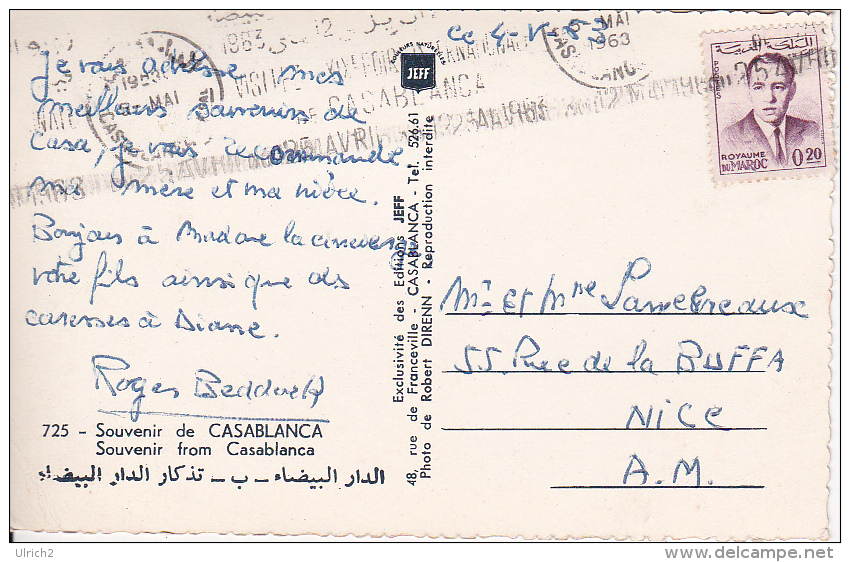 ce 4-V-63
Je vous adresse mes
meilleurs souvenirs de
Casa, je vous recommande
ma mère et ma nièce.
Bonjour à Madame la
votre fils ainsi que des
caresses à Diane.
Roger
725 - Souvenir de CASABLANCA
Souvenir from Casablanca
الدار البيضاء - ب - تذكار الدار البيضاء
JEFF
Exclusivité des Editions JEFF
48, rue de Franceville - CASABLANCA - Tel. 526.61
Photo de Robert DIRENN - Reproduction interdite
CASABLANCA
1963
MAI
25 AVRIL
المملكة المغربية
POSTES
ROYAUME
DU MAROC
0.20
Mr et Mme
55 Rue de la BUFFA
NICE
A.M.
Ulrich2
http://www.delcampe.net